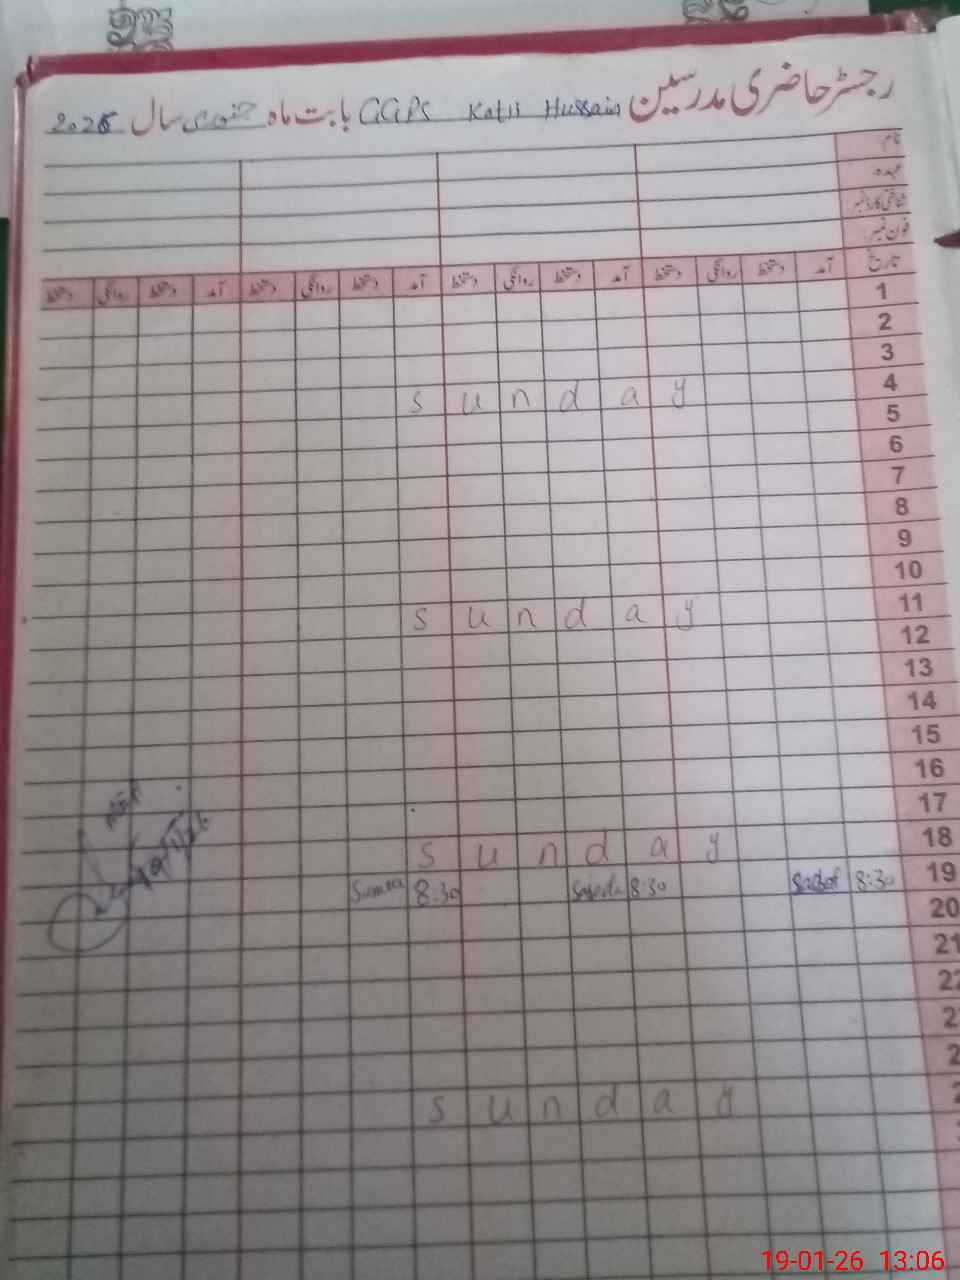 رجسٹر حاضری مدرسین GGPS Kotli Hussain بابت ماہ جنوری سال 2026
نام
عہدہ
شناختی کارڈ نمبر
فون نمبر
تاریخ آمد دستخط روانگی دستخط آمد دستخط روانگی دستخط آمد دستخط روانگی دستخط آمد دستخط روانگی دستخط
1
2
3
4 sunday
5
6
7
8
9
10
11 sunday
12
13
14
15
16
17
18 sunday
19 8:30 Sadaf 8:30 Sajeda 8:30 Sumra
20
21
22
sunday
19/1/26
19-01-26 13:06